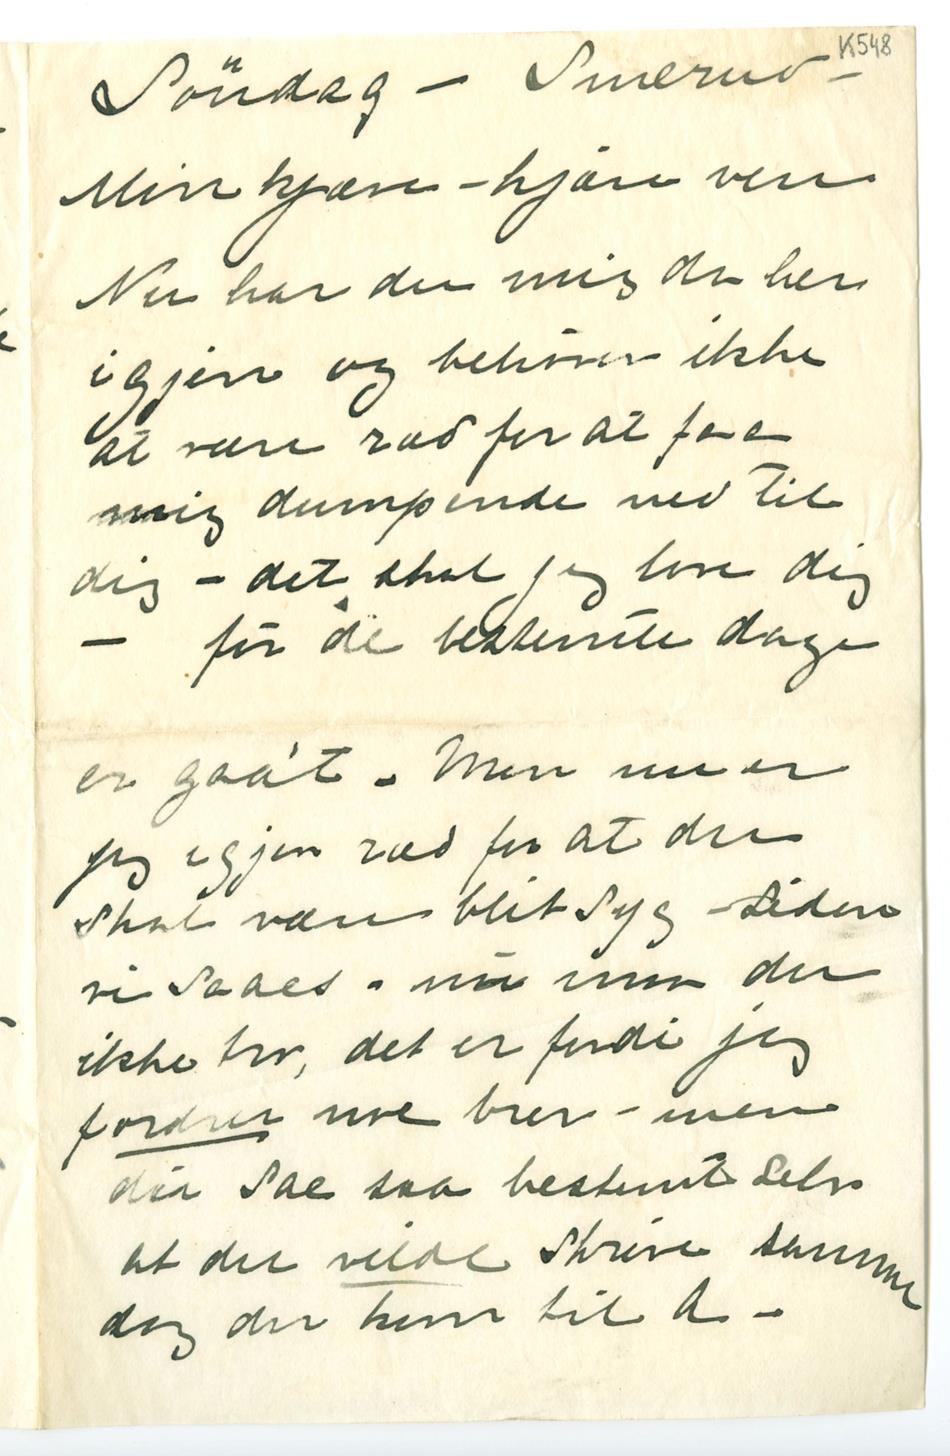 K548
Söndag – Smerud –
Min kjære – kjære ven
Nu har du mig da her
igjen og behöver ikke
at være ræd for at faa
mig dumpende ned til
dig – det skal jeg love dig
– för de bestemte dage
er gaa't – Men nu er
jeg igjen ræd for at du
skal være blit syg – siden
vi saaes – nu maa du
ikke tro, det er fordi jeg
fordrer noe brev – men
du sae saa bestemt selv
at du vilde skrive samme
dag du kom til A –